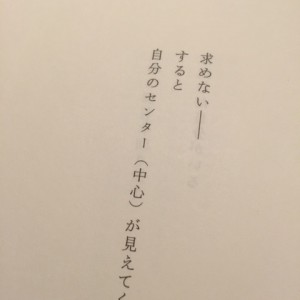 求めない——
すると
自分のセンター（中心）が見えてく